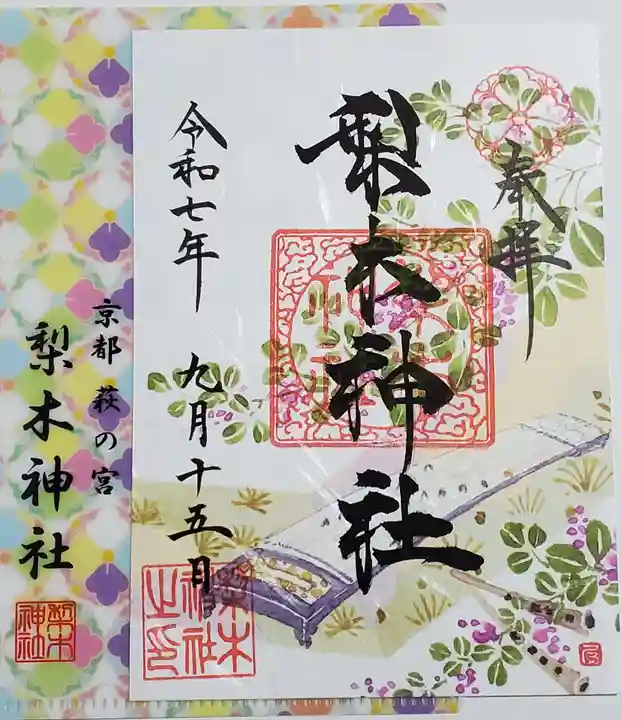 奉拝
梨木神社
令和七年 九月十五日
梨木神社之印
京都 萩の宮
梨木神社
梨木神社